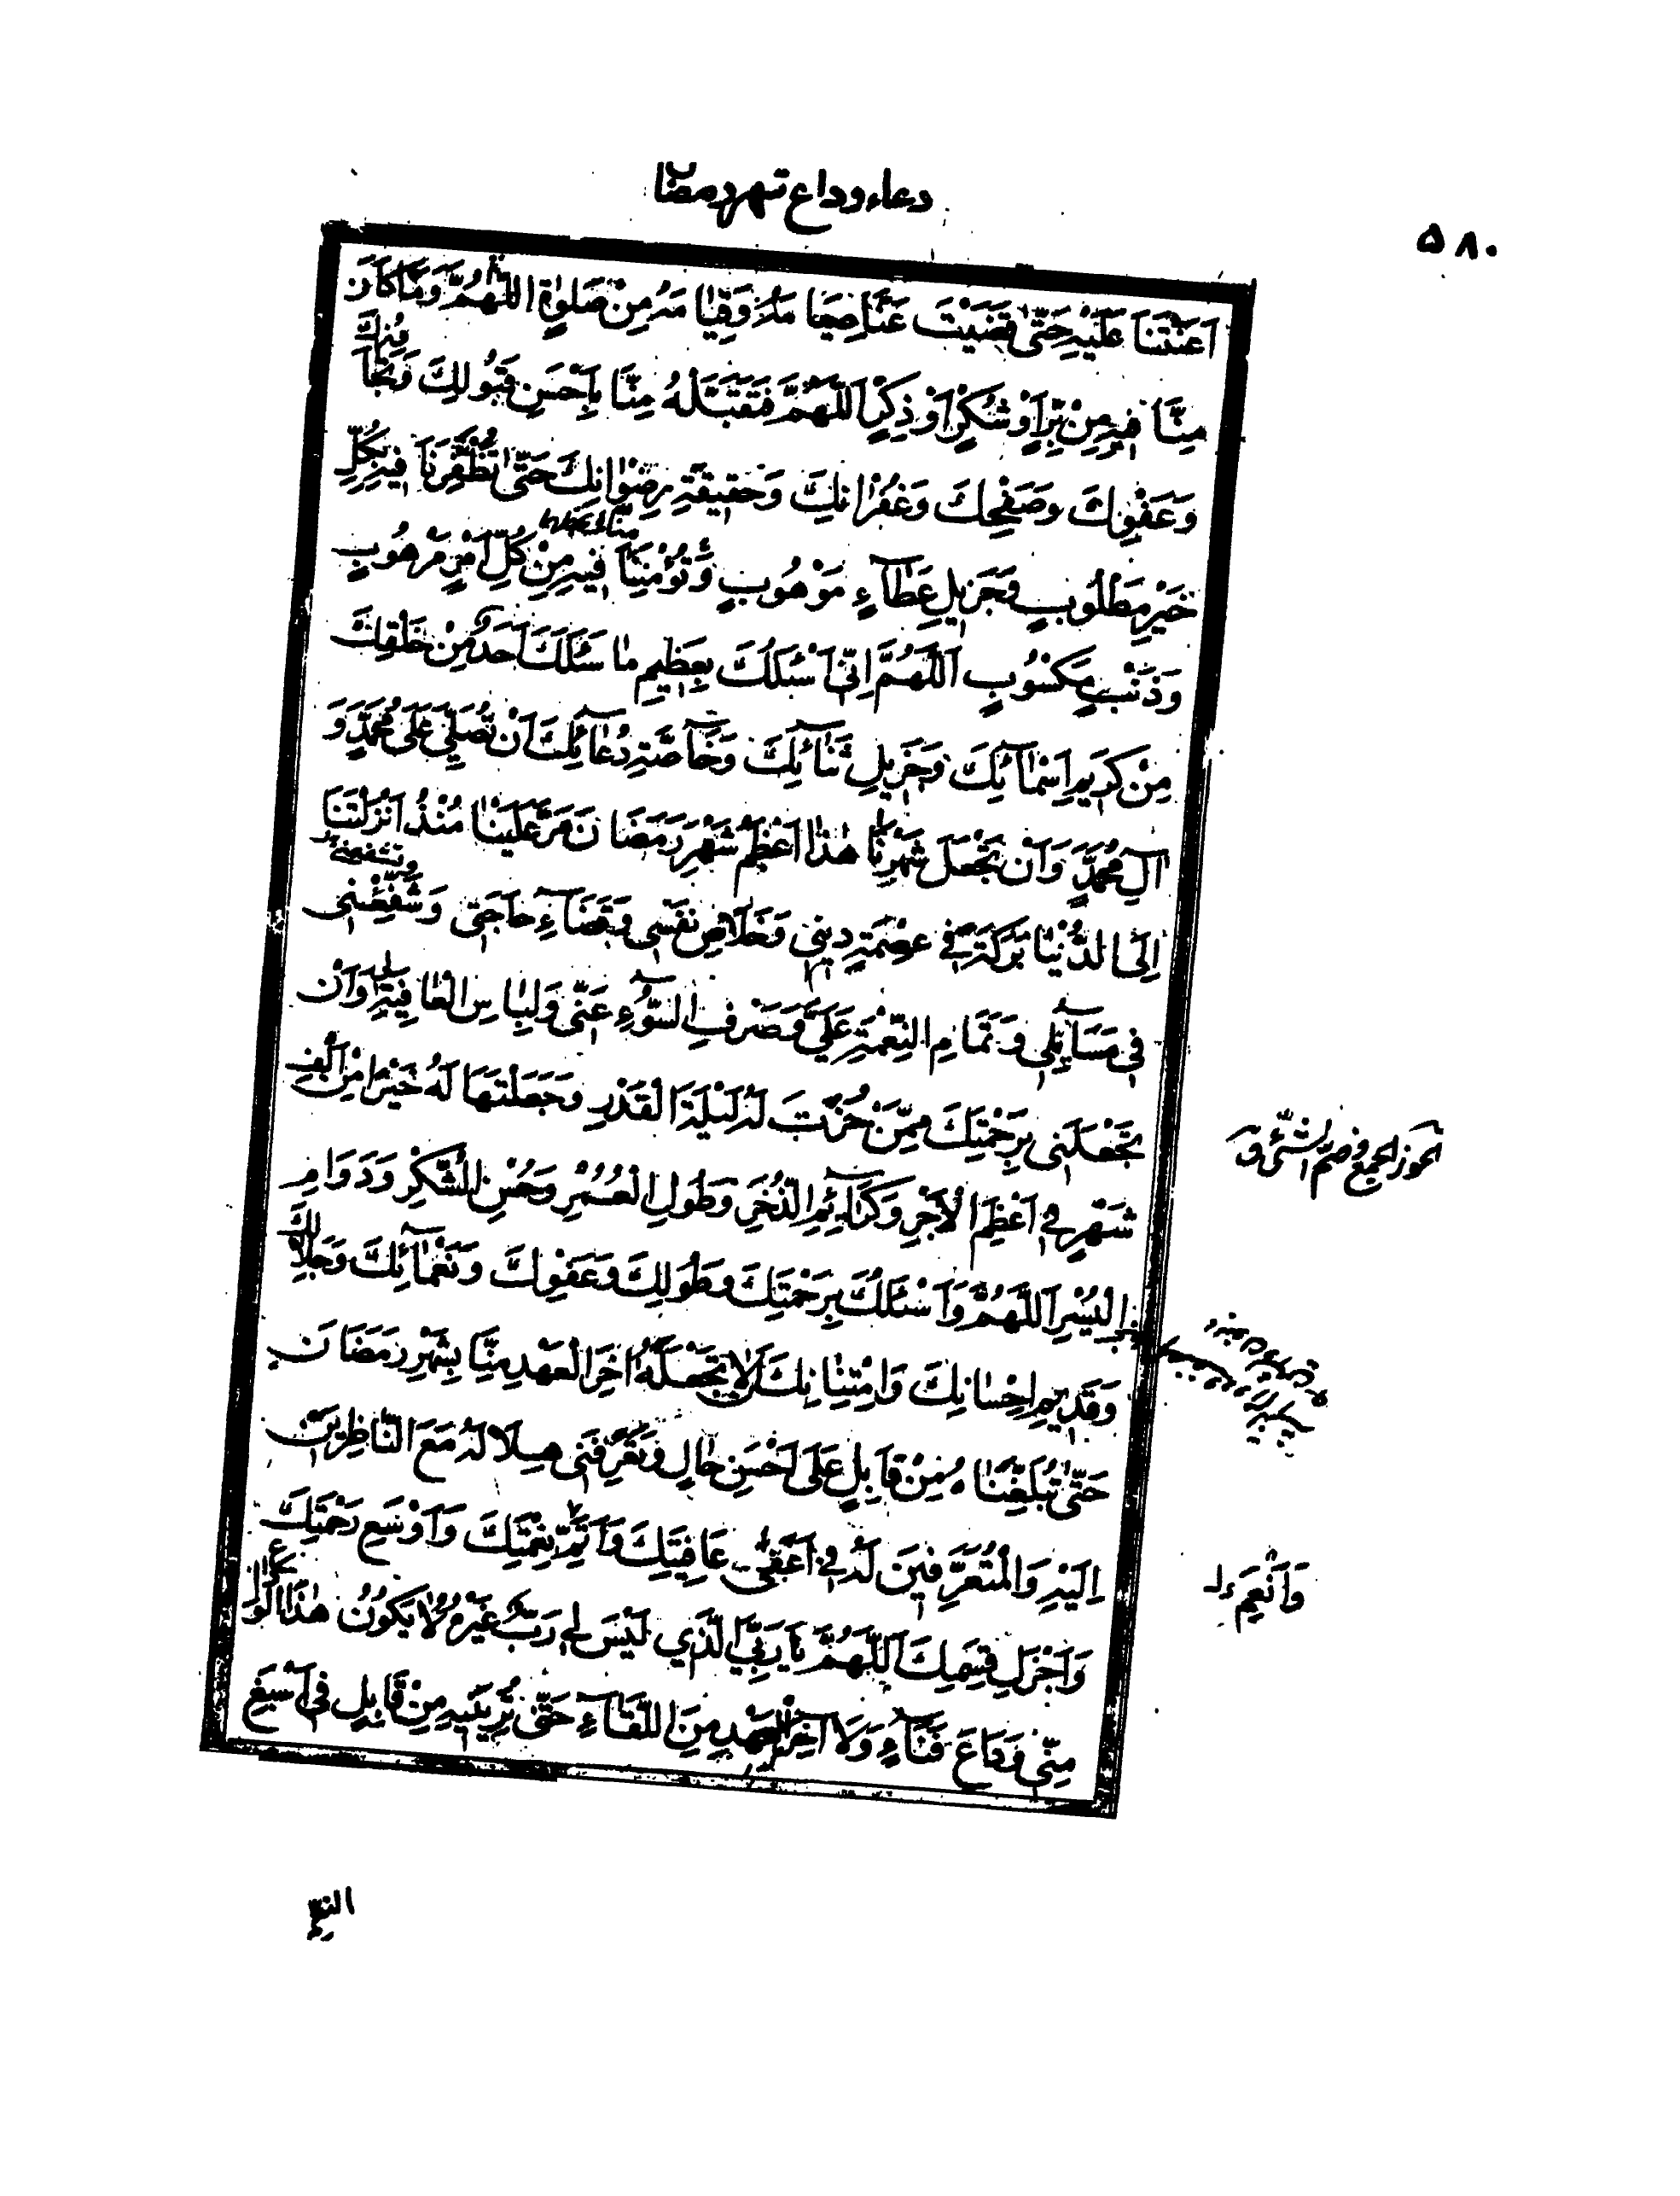 دعاء وداع شهر رمضان
۵۸۰
اَعَنْتَنا عَلَيْهِ حَتّى قَضَيْتَ عَنّا صِيامَهُ وَقِيامَهُ مِنْ صَلوٰةٍ اللّهُمَّ وَما كانَ
مِنّا فيهِ مِنْ بِرٍّ اَوْ شُكْرٍ اَوْ ذِكْرٍ اللّهُمَّ فَتَقَبَّلْهُ مِنّا بِاَحْسَنِ قَبُولِكَ وَتَجاوُزِكَ
وَعَفْوِكَ وَصَفْحِكَ وَغُفْرانِكَ وَحَقيقَةِ رِضْوانِكَ حَتّى تُظْفِرَنا فيهِ بِكُلِّ
خَيْرٍ مَطْلُوبٍ وَجَزيلِ عَطآءٍ مَوْهُوبٍ وَتُؤْمِنَنا فيهِ مِنْ كُلِّ اَمْرٍ مَرْهُوبٍ
وَذَنْبٍ مَكْسُوبٍ اَللّهُمَّ اِنّى اَسْئَلُكَ بِعَظيمِ ما سَئَلَكَ اَحَدٌ مِنْ خَلْقِكَ
مِنْ كَريمِ اَسْمآئِكَ وَجَزيلِ ثَنآئِكَ وَخآصَّةِ دُعآئِكَ اَنْ تُصَلِّىَ عَلى مُحَمَّدٍ وَ
آلِ مُحَمَّدٍ وَاَنْ تَجْعَلَ شَهْرَنا هٰذا اَعْظَمَ شَهْرِ رَمَضانَ مَرَّ عَلَيْنا مُنْذُ اَنْزَلْتَنا
اِلَى الدُّنْيا بَرَكَةً فى عِصْمَةِ دينى وَخَلاصِ نَفْسى وَقَضآءِ حاجَتى وَتُشَفِّعَنى
فى مَسآئِلى وَتَمامِ النِّعْمَةِ عَلَىَّ وَصَرْفِ السُّوءِ عَنّى وَلِباسِ الْعافِيَةِ وَاَنْ
تَجْعَلَنى بِرَحْمَتِكَ مِمَّنْ حُزْتَ لَهُ لَيْلَةَ الْقَدْرِ وَجَعَلْتَها لَهُ خَيْرًا مِنْ اَلْفِ
شَهْرٍ فى اَعْظَمِ الْاَجْرِ وَكَرآئِمِ الذُّخْرِ وَطُولِ الْعُمُرِ وَحُسْنِ الشُّكْرِ وَدَوامِ
الْيُسْرِ اَللّهُمَّ وَاَسْئَلُكَ بِرَحْمَتِكَ وَطَوْلِكَ وَعَفْوِكَ وَنَعْمآئِكَ وَجَلالِكَ
وَقَديمِ اِحْسانِكَ وَامْتِنانِكَ اَنْ لا تَجْعَلَهُ اخِرَ الْعَهْدِ مِنّا بِشَهْرِ رَمَضانَ
حَتّى تُبَلِّغَناهُ مِنْ قابِلٍ عَلى اَحْسَنِ حالٍ وَتُعَرِّفَنى هِلالَهُ مَعَ النّاظِرينَ
اِلَيْهِ وَالْمُتَعَرِّفينَ لَهُ فى اَعْفى عافِيَتِكَ وَاَتَمِّ نِعْمَتِكَ وَاَوْسَعِ رَحْمَتِكَ
وَاَجْزَلِ قِسَمِكَ اَللّهُمَّ يا رَبِّىَ الَّذى لَيْسَ لى رَبٌّ غَيْرُهُ لا يَكُونُ هٰذَا الْوَداعُ
مِنّى وَداعَ فَنآءٍ وَلا آخِرَ الْعَهْدِ مِنَ اللِّقآءِ حَتّى تُرِيَنيهِ مِنْ قابِلٍ فى اَسْبَغِ
الحوز الجمع وضم الشئ ق
وَاَنْعَمِ
النعم